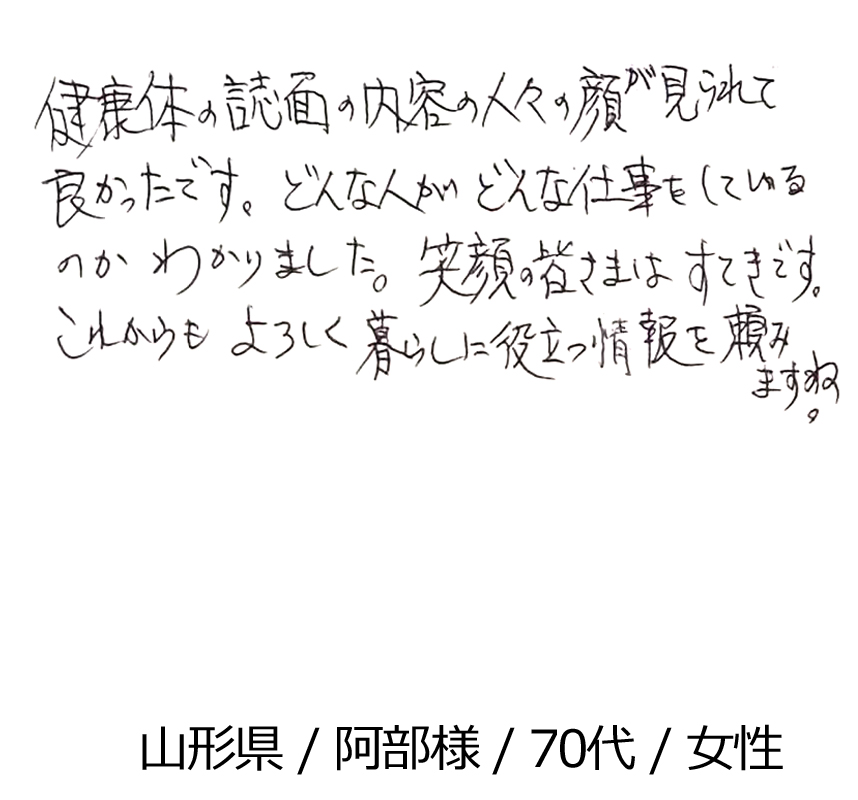 健康体の誌面の内容の人々の顔が見られて
良かったです。どんな人がどんな仕事をしている
のかわかりました。笑顔の皆さまはすてきです。
これからもよろしく暮らしに役立つ情報を頼み
ますね。
山形県 / 阿部様 / 70代 / 女性